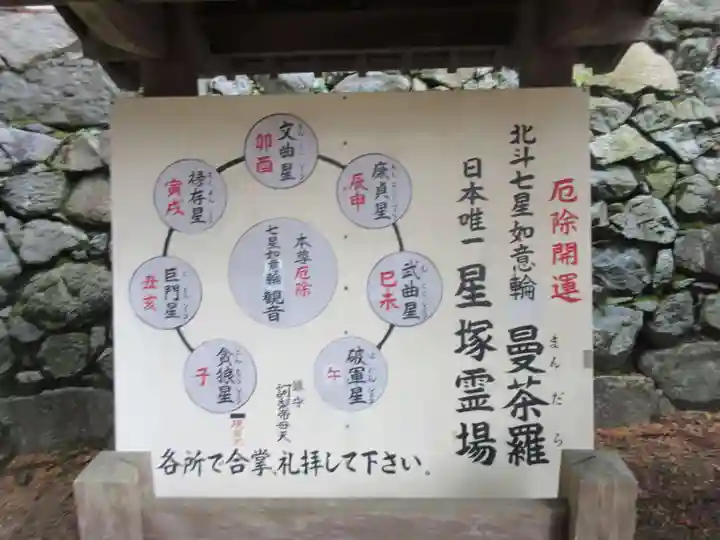 厄除開運
北斗七星如意輪 曼荼羅
まんだら
日本唯一 星塚霊場
文曲星
卯酉
廉貞星
辰申
武曲星
巳未
破軍星
午
本尊厄除
七星如意輪観音
禄存星
寅戌
巨門星
丑亥
貪狼星
子
鎮守
訶梨帝母天
各所で合掌、礼拝して下さい。